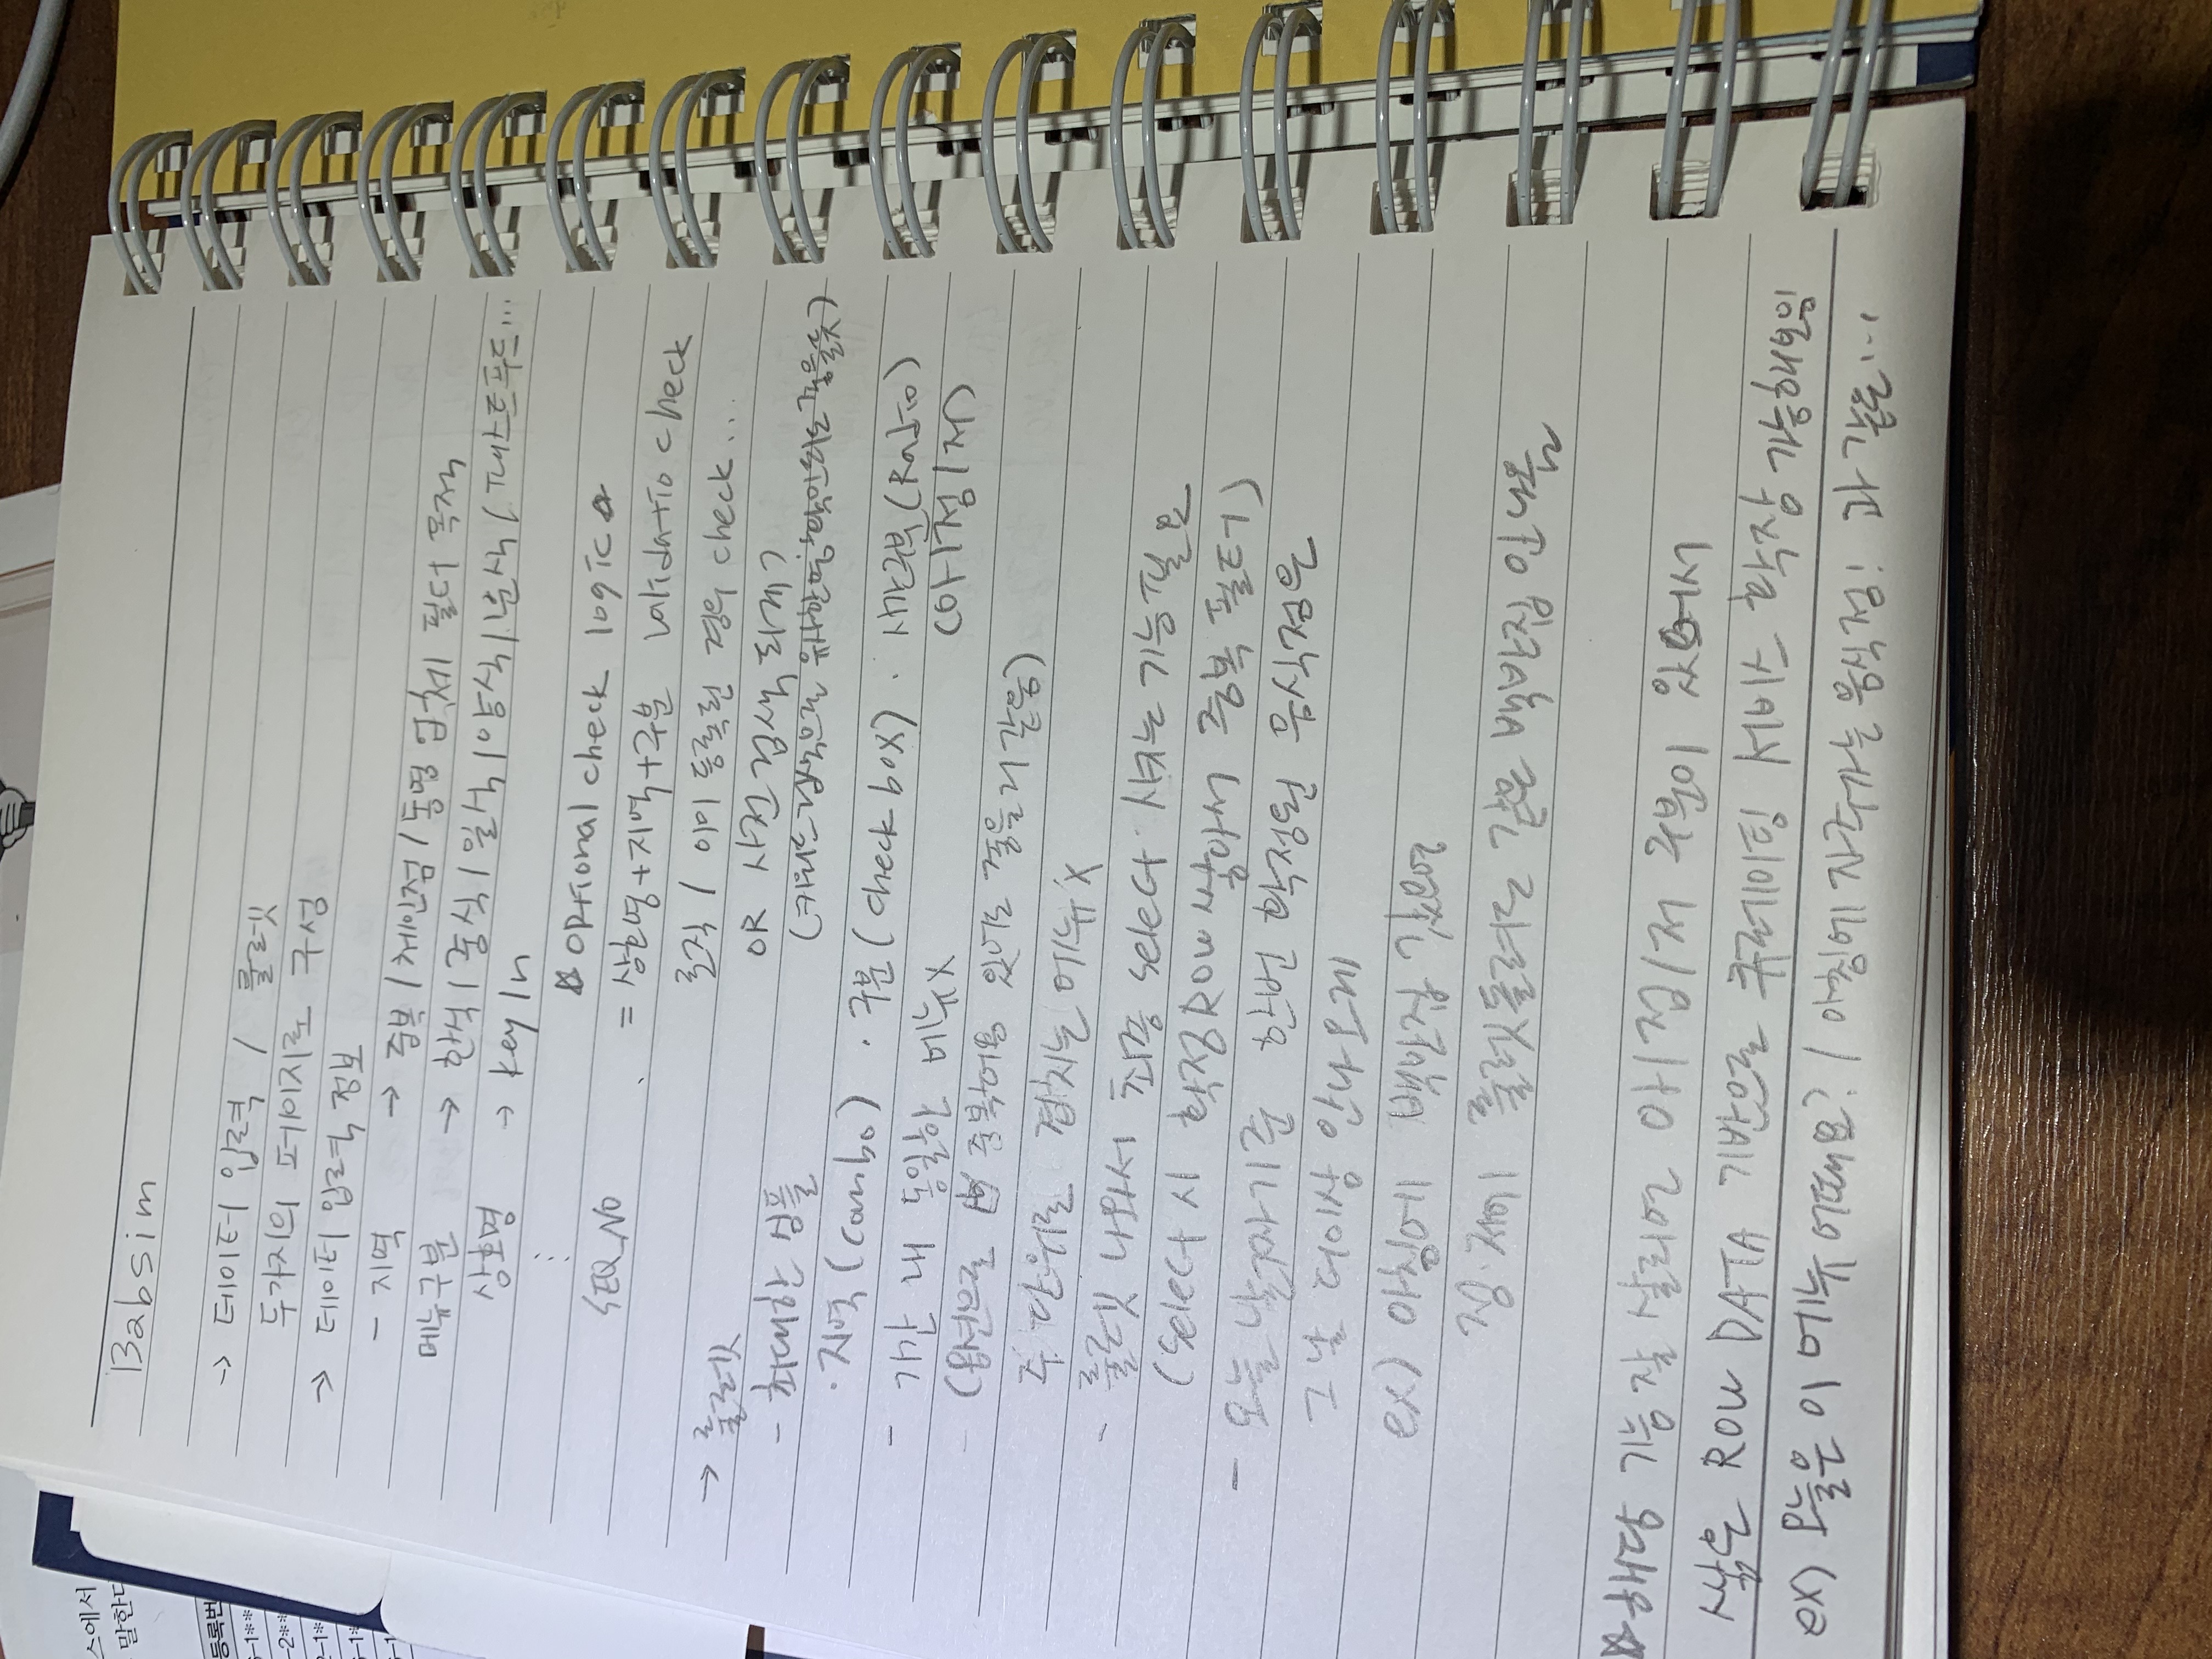 스에서
말한다
등록번
Babsim
→ 데이터 입력 / 룰렛
두가지의 페이지로 구성
→ 데이터 입력 정보
- 지역 → 중복 / 체인점 / 동명 업체 필터 목적
메뉴구분 → 한식 / 중식 / 일식 / 양식 / 분식 / 패스트푸드...
상호명 → key In
⋮
☆ optional check logic ☆
SEQ_NO
= 상호명+지역+구분 validatio check
로직 / 이미 등록된 경우 check...
→ 룰렛
OR 사전 검색 되게?
- 최대한 심플
(키워드 검색으로 유사한명 확인되도 좋을듯)
· 지역 (combo) · 구분 (check box) · 시간구분 (Radio)
(아/점/저)
- 기간 내 동일한 메뉴X
- (옵션으로 중복허용 있어도 좋을거 같음)
주 단위로 겹치는 메뉴X
- 룰렛 나와서 최종 select 시키는 기능 필요
(select 시 확정 Row 쌓아서 중복 필터)
- 오늘 날짜기준 한번 확정된 음식점은
그 날 더이상 안나오게
ex) 아침에 백반집 갔으면
점·저에 룰렛돌려도 같은 백반집 안나옴
☆ 해당 기능 잘 살리면 아/점/저 구분이 있어서
쌓은 ROW DATA 기반으로 큐레이팅 서비스 확장 가능해보임
ex) 오늘은 이 메뉴 어때요? / 아침에 자주가는 음식점! 과 같은...